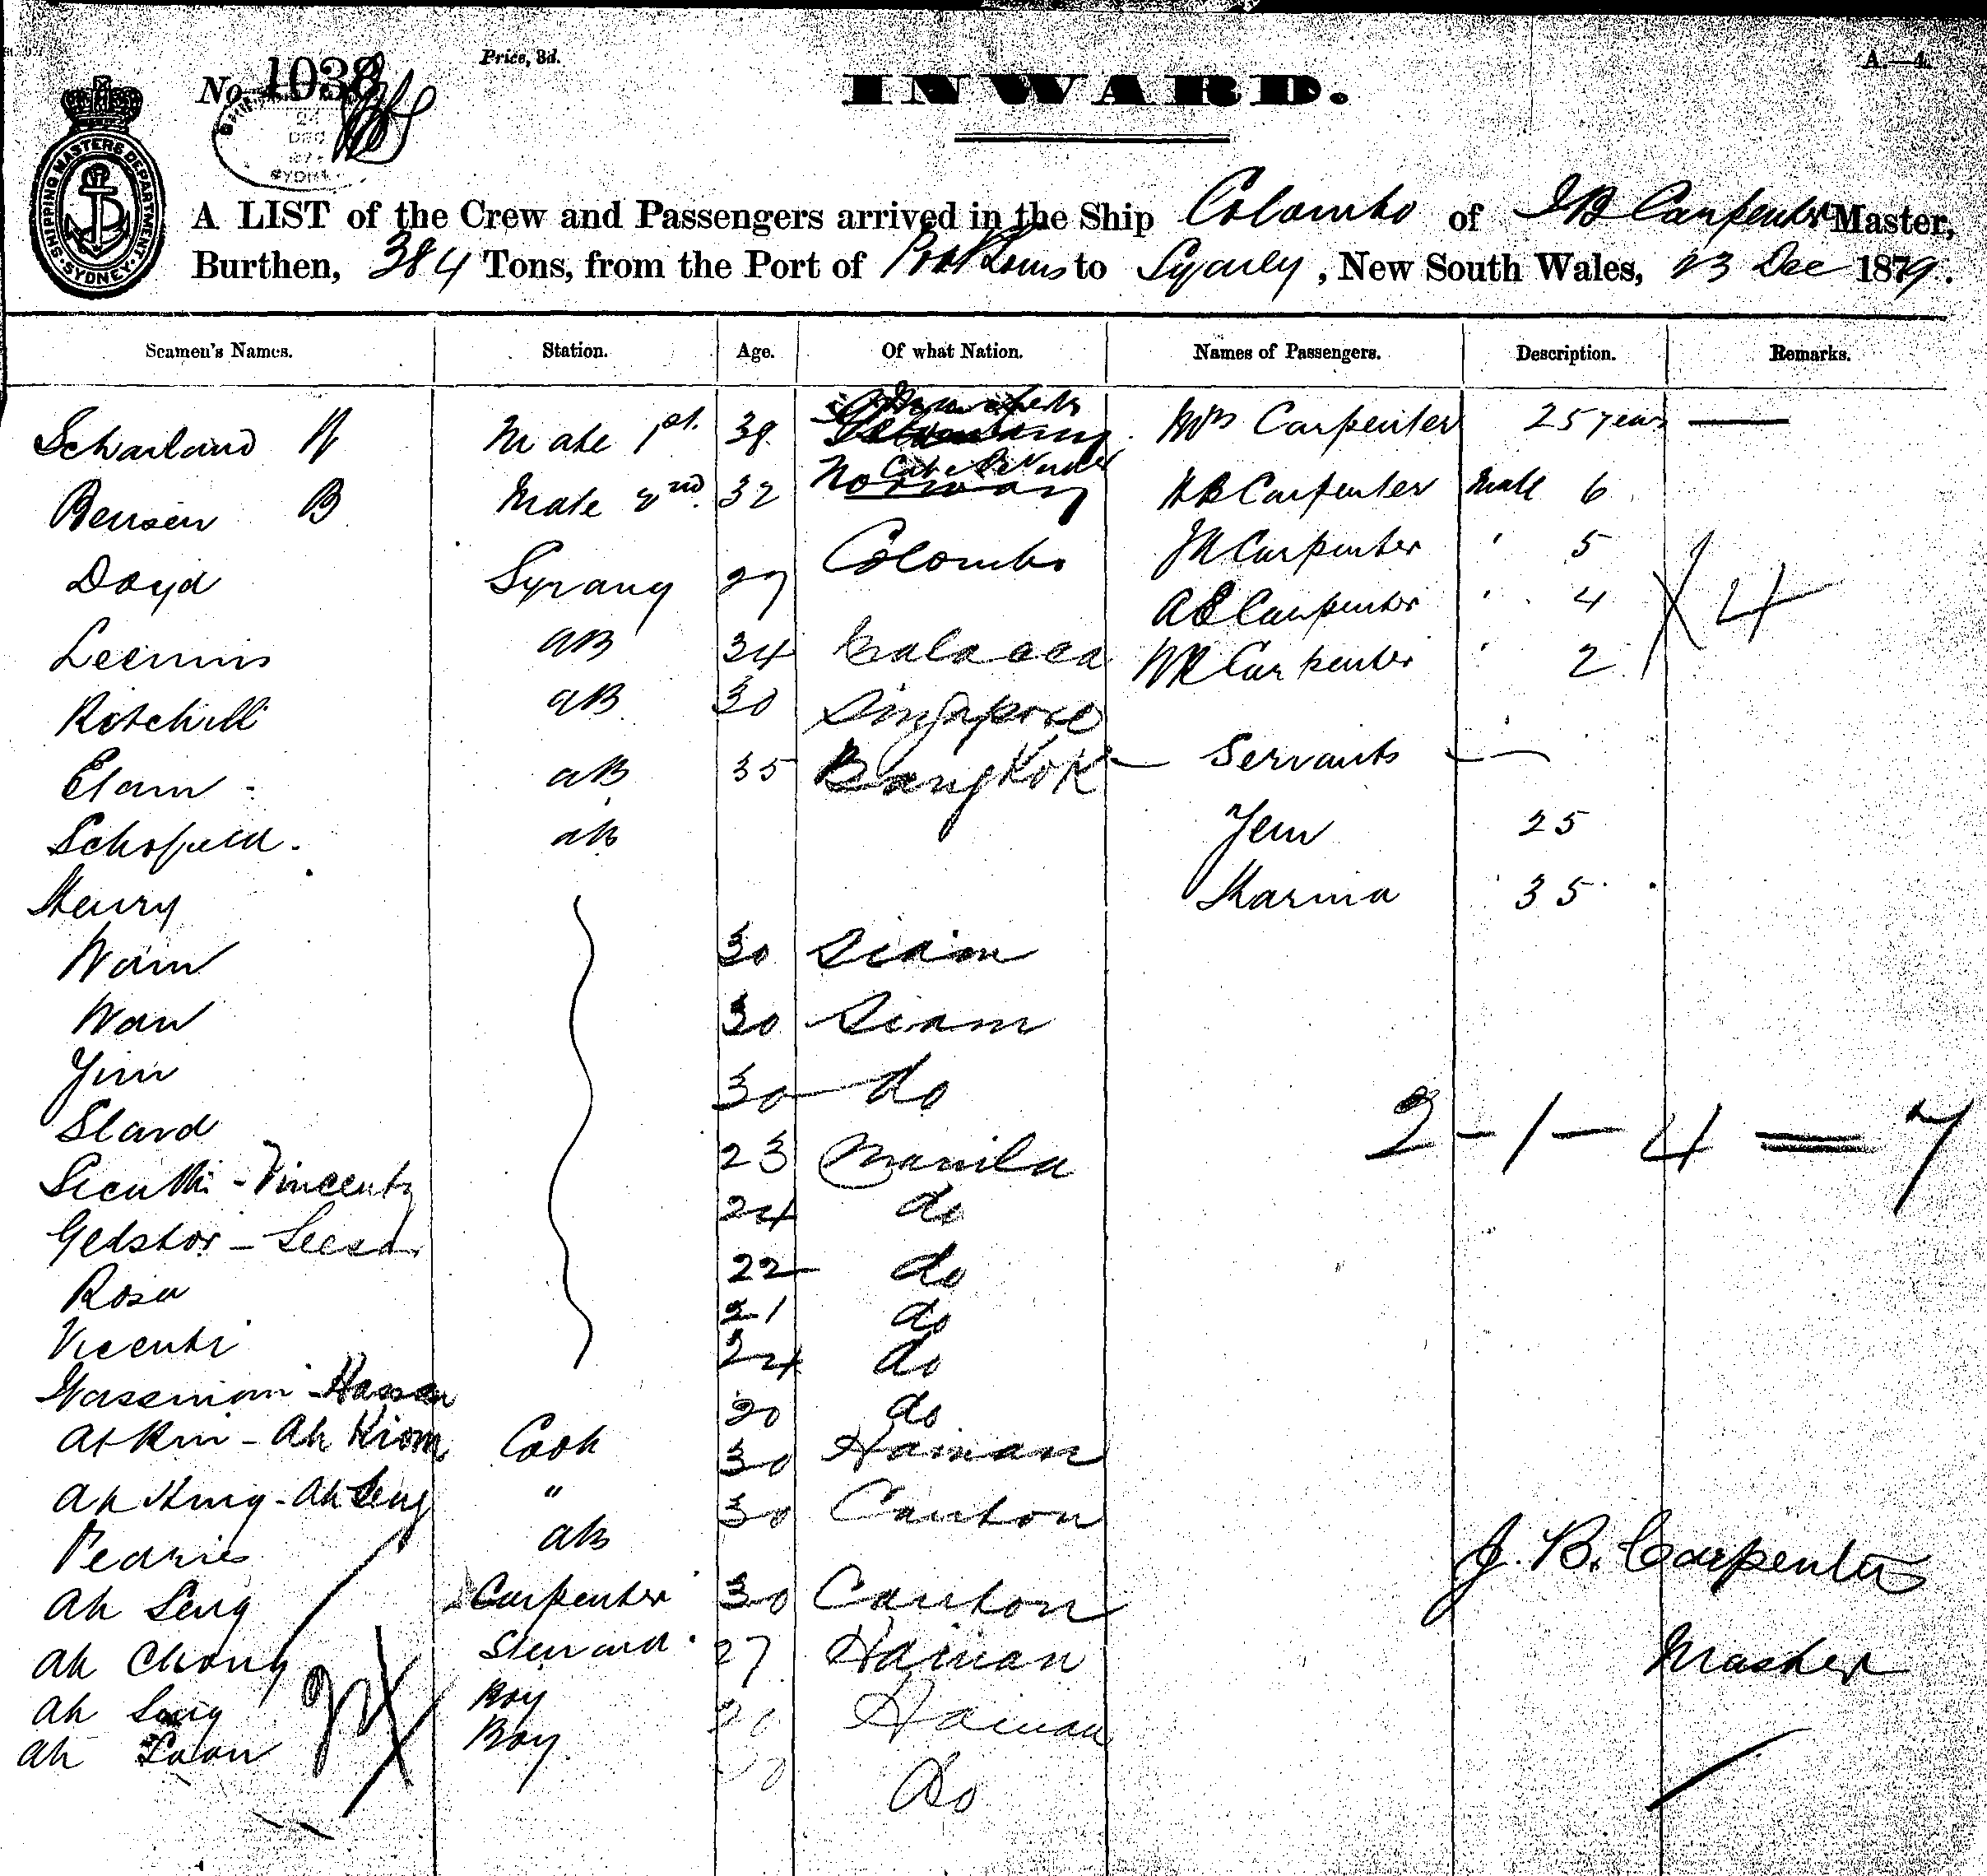 Price, 3d.
A.—4.
No. 1038
24
DEC
SYDNEY
SHIPPING MASTERS DEPARTMENT · SYDNEY ·
INWARD.
A LIST of the Crew and Passengers arrived in the Ship Colombo of J B Carpenter Master,
Burthen, 384 Tons, from the Port of Port Louis to Sydney, New South Wales, 23 Dec 1879.
Seamen's Names. Station. Age. Of what Nation. Names of Passengers. Description. Remarks.
Scharland N Mate 1st. 38 Mrs Carpenter 25 years —
Bensen B Mate 2nd. 32 Norway H B Carpenter Male 6
Doyd Syrang 27 Colombo J R Carpenter " 5
A E Carpenter " 4 4
Leennis AB 34 Malacca W R Carpenter " 2
Ritchill AB 30 Singapore
Elam AB 35 Bangkok — Servants —
Schofield. AB Jem 25
Henry Karina 35
Wain 30 Siam
Wan 30 Siam
Jim 30 do
Slard 23 Manila 2 — 1 — 4 = 7
Vincent 24 do
22 do
Rosa 21 do
Vicenti 24 do
Hassan 20 do
Ah Kiom Cook 30 Hainan
Ah King - Ah Seng " 30 Canton
Pedrie AB
J. B. Carpenter
Ah Seng Carpenter 30 Canton
Ah Chong Steward. 27 Hainan Master
Ah Sing Boy 20 Hainan
Ah Boy Do